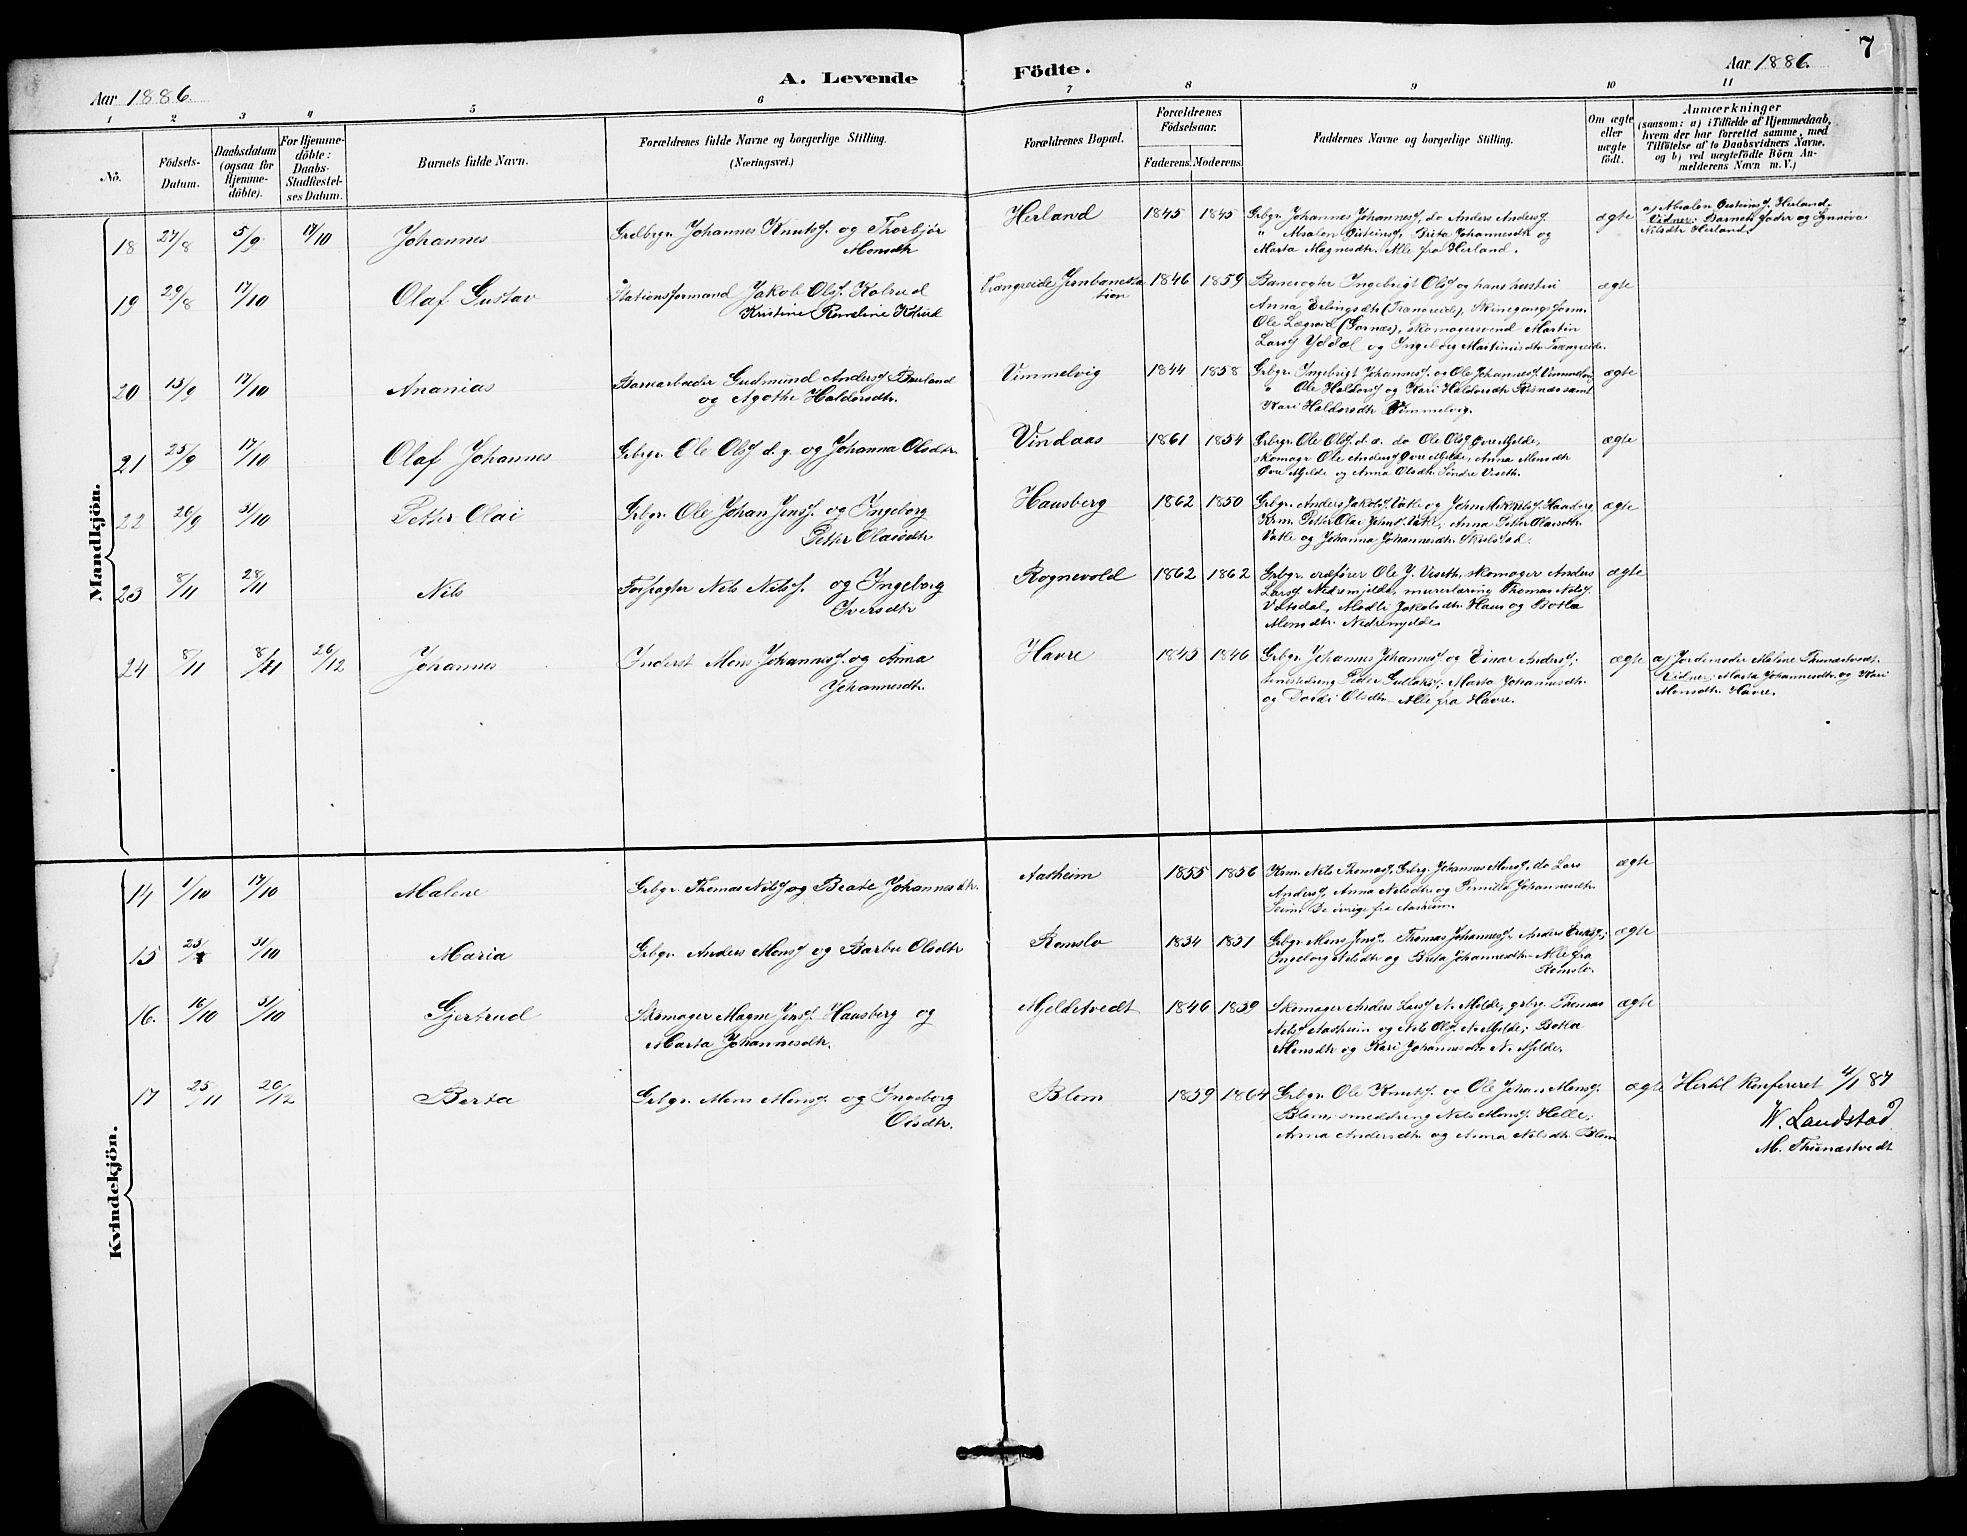 7
Aar 1886.
A. Levende Födte.
Aar 1886.
1 2 3 4 5 6 7 8 9 10 11
No.
Födsels-
Datum.
Daabsdatum
(ogsaa for
Hjemme-
döbte).
For Hjemme-
döbte:
Daabs-
Stadfæstel-
ses Datum.
Barnets fulde Navn.
Forældrenes fulde Navne og borgerlige Stilling.
(Næringsvei.)
Forældrenes Bopæl.
Forældrenes
Födselsaar.
Faderens. Moderens.
Faddernes Navne og borgerlige Stilling.
Om ægte
eller
uægte
født.
Anmærkninger
(saasom: a) i Tilfælde af Hjemmedaab,
hvem der har forrettet samme, med
Tilföielse af to Daabsvidners Navne,
og b) ved uægtefödte Börn An-
melderens Navn m. V.)
Mandkjön.
18 27/8 5/9 17/10 Johannes
Grdbrgr. Johannes Knuts. og Thorbjør
Monsdtr
Herland 1845 1845
Grbgr. Johannes Johannes., do Anders Anders.
" Absalon Østeins., Brita Johannesdtr og
Marta Magnesdtr. Alle fra Herland.
ægte
a) Absalon Østeins. Herland,
Vidner: Barnets fader og Synneva
Nilsdtr Herland.
19 29/8 17/10 Olaf Gustav
Stationsformand Jakob Ols. Kolrud
Kristine Karoline
Trængreide Jernbanesta
tion 1846 1859
Banevogter Ingebrigt Ols. og hans hustru
Anna Erlingsdtr (Trængreide), Skinegangsform.
Ole Lægreid (Garnæs), skomagersvend Martin
Lars. Yddal og Ingeborg Martinusdtr Trængreide.
ægte
20 15/9 17/10 Ananias
Banearbeider Gudmund Anders. Børland
og Agothe Haldorsdtr.
Vimmelvig 1844 1858
Grbgr. Ingebrigt Johannes. og Ole Johannes. Vimmelvig
" Ole Haldors. og Kari Haldorsdtr Risnæs samt
Kari Haldorsdtr Vimmelvig.
ægte
21 25/9 17/10 Olaf Johannes
Grbgr. Ole Ols. d. y. og Johanna Olsdtr.
Vindaas 1861 1854
Grbgr. Ole Ols. d. æ. do Ole Ols. Øvre Mjelde,
skomagr Ole Anders. Øvre Mjelde, Anna Monsdtr
Øvre Mjelde og Anna Olsdtr Søndre Viseth.
ægte
22 26/9 31/10 Petter Olai
Grbgr. Ole Johan Jens. og Ingeborg
Petter Olaisdtr
Hausberg 1862 1850
Grbgr. Anders Jakobs. og John Mikkels. Hausberg
Krm. Peter Olai Johns. Anna Peter Olaisdtr.
Vatle og Johanna Johannesdtr. Skulstad.
ægte
23 8/11 28/11 Nils
Forpagter Nils Nils. og Ingeborg
Iversdtr
Rognevold 1862 1862
Grbgr. ordfører Ole J. Viseth, skomager Anders
Lars. Nedremjelde, murerlæring Thomas Nils.
Jakobsdtr. Haus og Botla
Monsdtr. Nedremjelde.
ægte
24 8/11 8/11 26/12 Johannes
Inderst Mons Johannes. og Anna
Johannesdtr.
Havre 1845 1846
Grbgr. Johannes Johannes. og Einar Anders.;
tjenestedreng Peder Gullaks., Marta Johannesdtr
og Dordi Olsdtr - Alle fra Havre.
ægte
a) Jordemoder Malene Thunæstvedt.
Vidner: Marta Johannesdtr og Kari
Monsdtr. Havre.
Kvindekjön.
14 1/10 17/10 Malene
Grbgr. Thomas Nils. og Beate Johannesdtr.
Aasheim 1855 1856
Krm. Nils Thomas., Grbrg. Johannes Mons., do Lars
Anders., Anna Nilsdtr og Pernille Johannesdtr.
Seim. De øvrige fra Aasheim.
ægte
15 31/10 Maria
Grbgr. Anders Mons. og Barbra Olsdtr
Romslo 1834 1851
Grbgr. Mons Jens. Thomas Johannes. Anders Eriks.;
Ingeborg Nilsdtr og Brita Johannesdtr - Alle fra
Romslo.
ægte
16. 16/10 31/10 Gjertrud
Skomager Magne Jens. Hausberg og
Marta Johannesdtr.
Mjeldetvedt 1846 1859
Skomager Anders Lars. N. Mjelde, grbrg. Thomas
Nils. Aasheim og Nils Ols. N. Mjelde; Botla
Monsdtr og Kari Johannesdtr N. Mjelde.
ægte
17 25/11 26/12 Berta
Grbgr. Mons Mons. og Ingeborg
Olsdtr.
Blom 1859 1864
Grbgr. Ole Knuts. og Ole Johan Mons.
Blom, smeddreng Nils Mons. Helle;
Anna Andersdtr og Anna Nilsdtr Blom
ægte
Hertil konfereret 4/1 87
W. Landstad.
M. Thunæstvedt